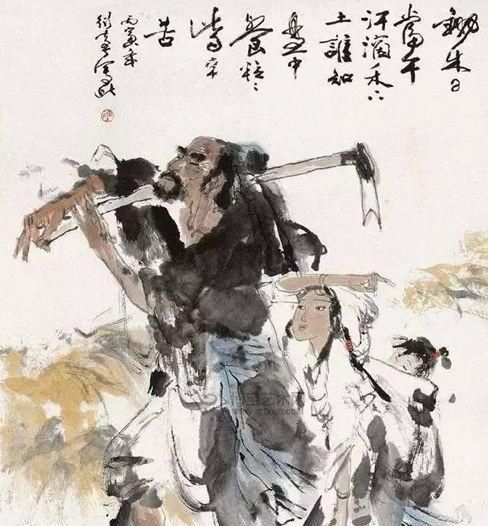 鋤禾日
當午
汗滴禾下
土誰知
盤中
餐粒々
皆辛
苦
丙寅年